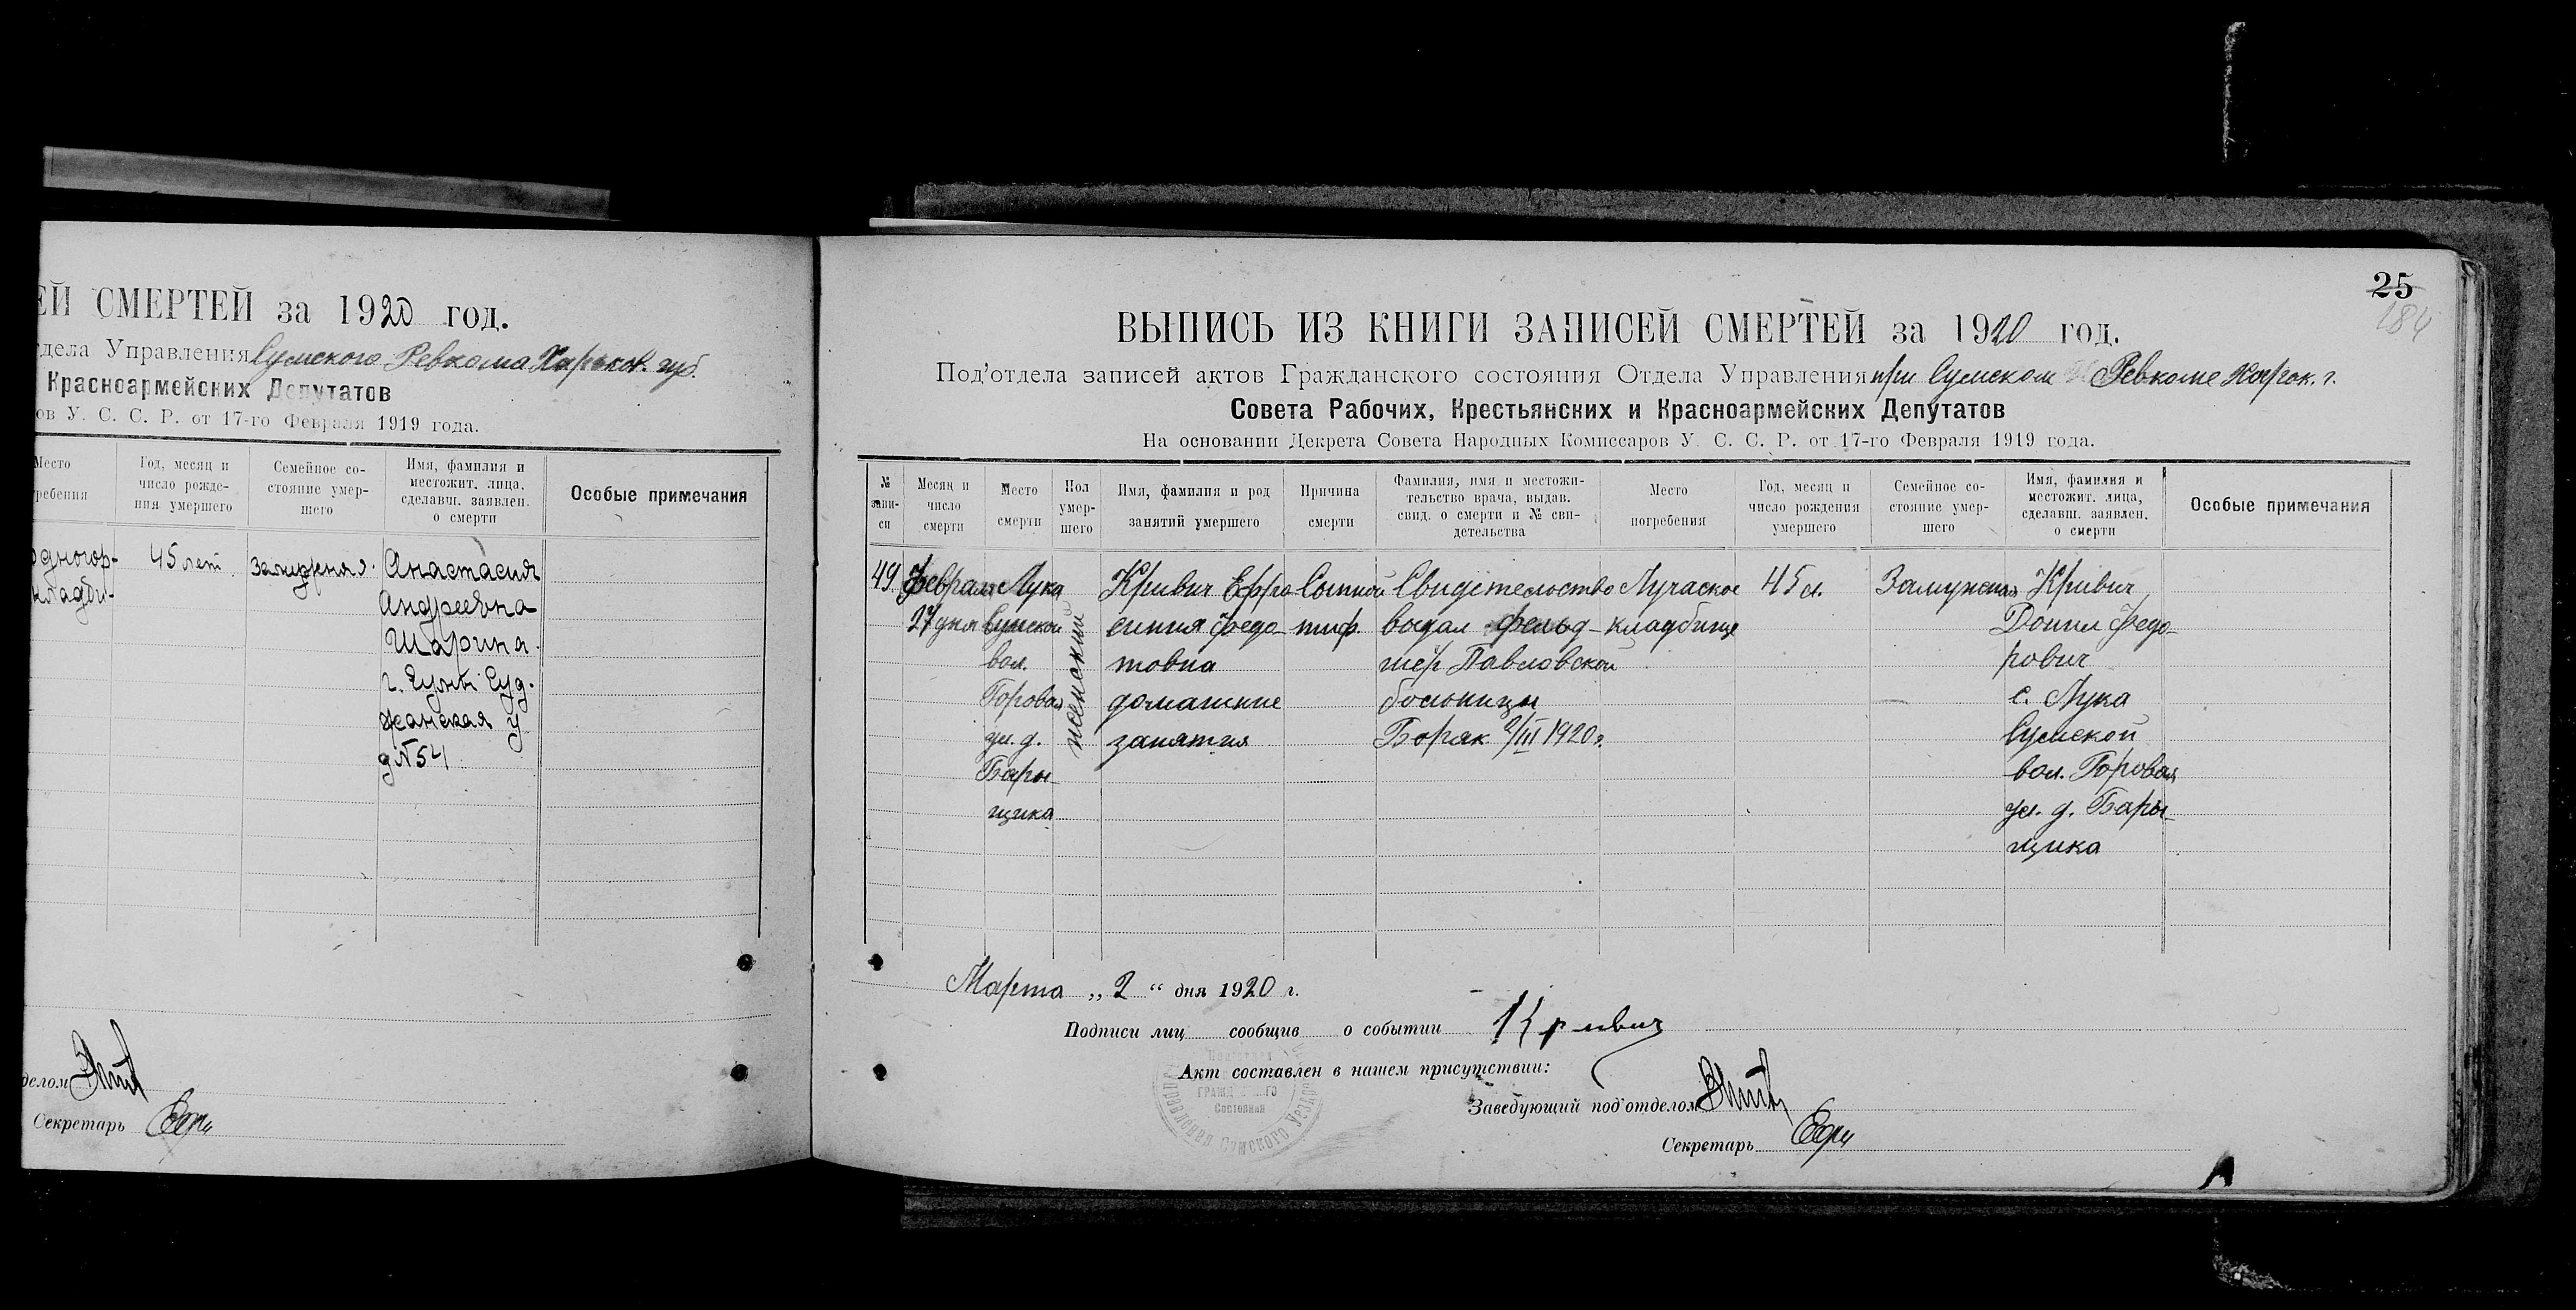 ЕЙ СМЕРТЕЙ за 1920 год.
дела Управления Сумского Ревкома Харьков. губ.
Красноармейских Депутатов
ов У. С. С. Р. от 17-го Февраля 1919 года.
Место
ребения
Год, месяц и
число рожде-
ния умершего
Семейное со-
стояние умер-
шего
Имя, фамилия и
местожит. лица,
сделавш. заявлен.
о смерти
Особые примечания
одногор-
кладби-
45 лет
Замужняя.
Анастасия
Андреевна
Шарина.
г. Сумы Суд-
жанская у
д № 54
делом
Секретарь
25
184
ВЫПИСЬ ИЗ КНИГИ ЗАПИСЕЙ СМЕРТЕЙ за 1920 год.
Под'отдела записей актов Гражданского состояния Отдела Управления при Сумском Ревкоме Харьк. г.
Совета Рабочих, Крестьянских и Красноармейских Депутатов
На основании Декрета Совета Народных Комиссаров У. С. С. Р. от 17-го Февраля 1919 года.
№
запи-
си
Месяц и
число
смерти
Место
смерти
Пол
умер-
шего
Имя, фамилия и род
занятий умершего
Причина
смерти
Фамилия, имя и местожи-
тельство врача, выдав.
свид. о смерти и № сви-
детельства
Место
погребения
Год, месяц и
число рождения
умершего
Семейное со-
стояние умер-
шего
Имя, фамилия и
местожит. лица,
сделавш. заявлен.
о смерти
Особые примечания
49
Февраля
27 дня
Лука
Сумской
вол.
Горовая
ул. д.
Бары-
щика
женский
Кривич Ефро
синия Федо-
товна
домашние
занятия
Сыпной
тиф
Свидетельство
выдал фельд-
шер Павловской
больницы
Боряк 2/III 1920 г.
Лучаское
кладбище
45 л.
Замужняя
Кривич
Данил Федо-
рович
с. Лука
Сумской
вол. Горовая
ул. д. Бары-
щика
Марта „2“ дня 1920 г.
Подписи лиц сообщив о событии Кривич
Акт составлен в нашем присутствии:
Заведующий под'отделом
Секретарь
ГРАЖД ГО
Состояния